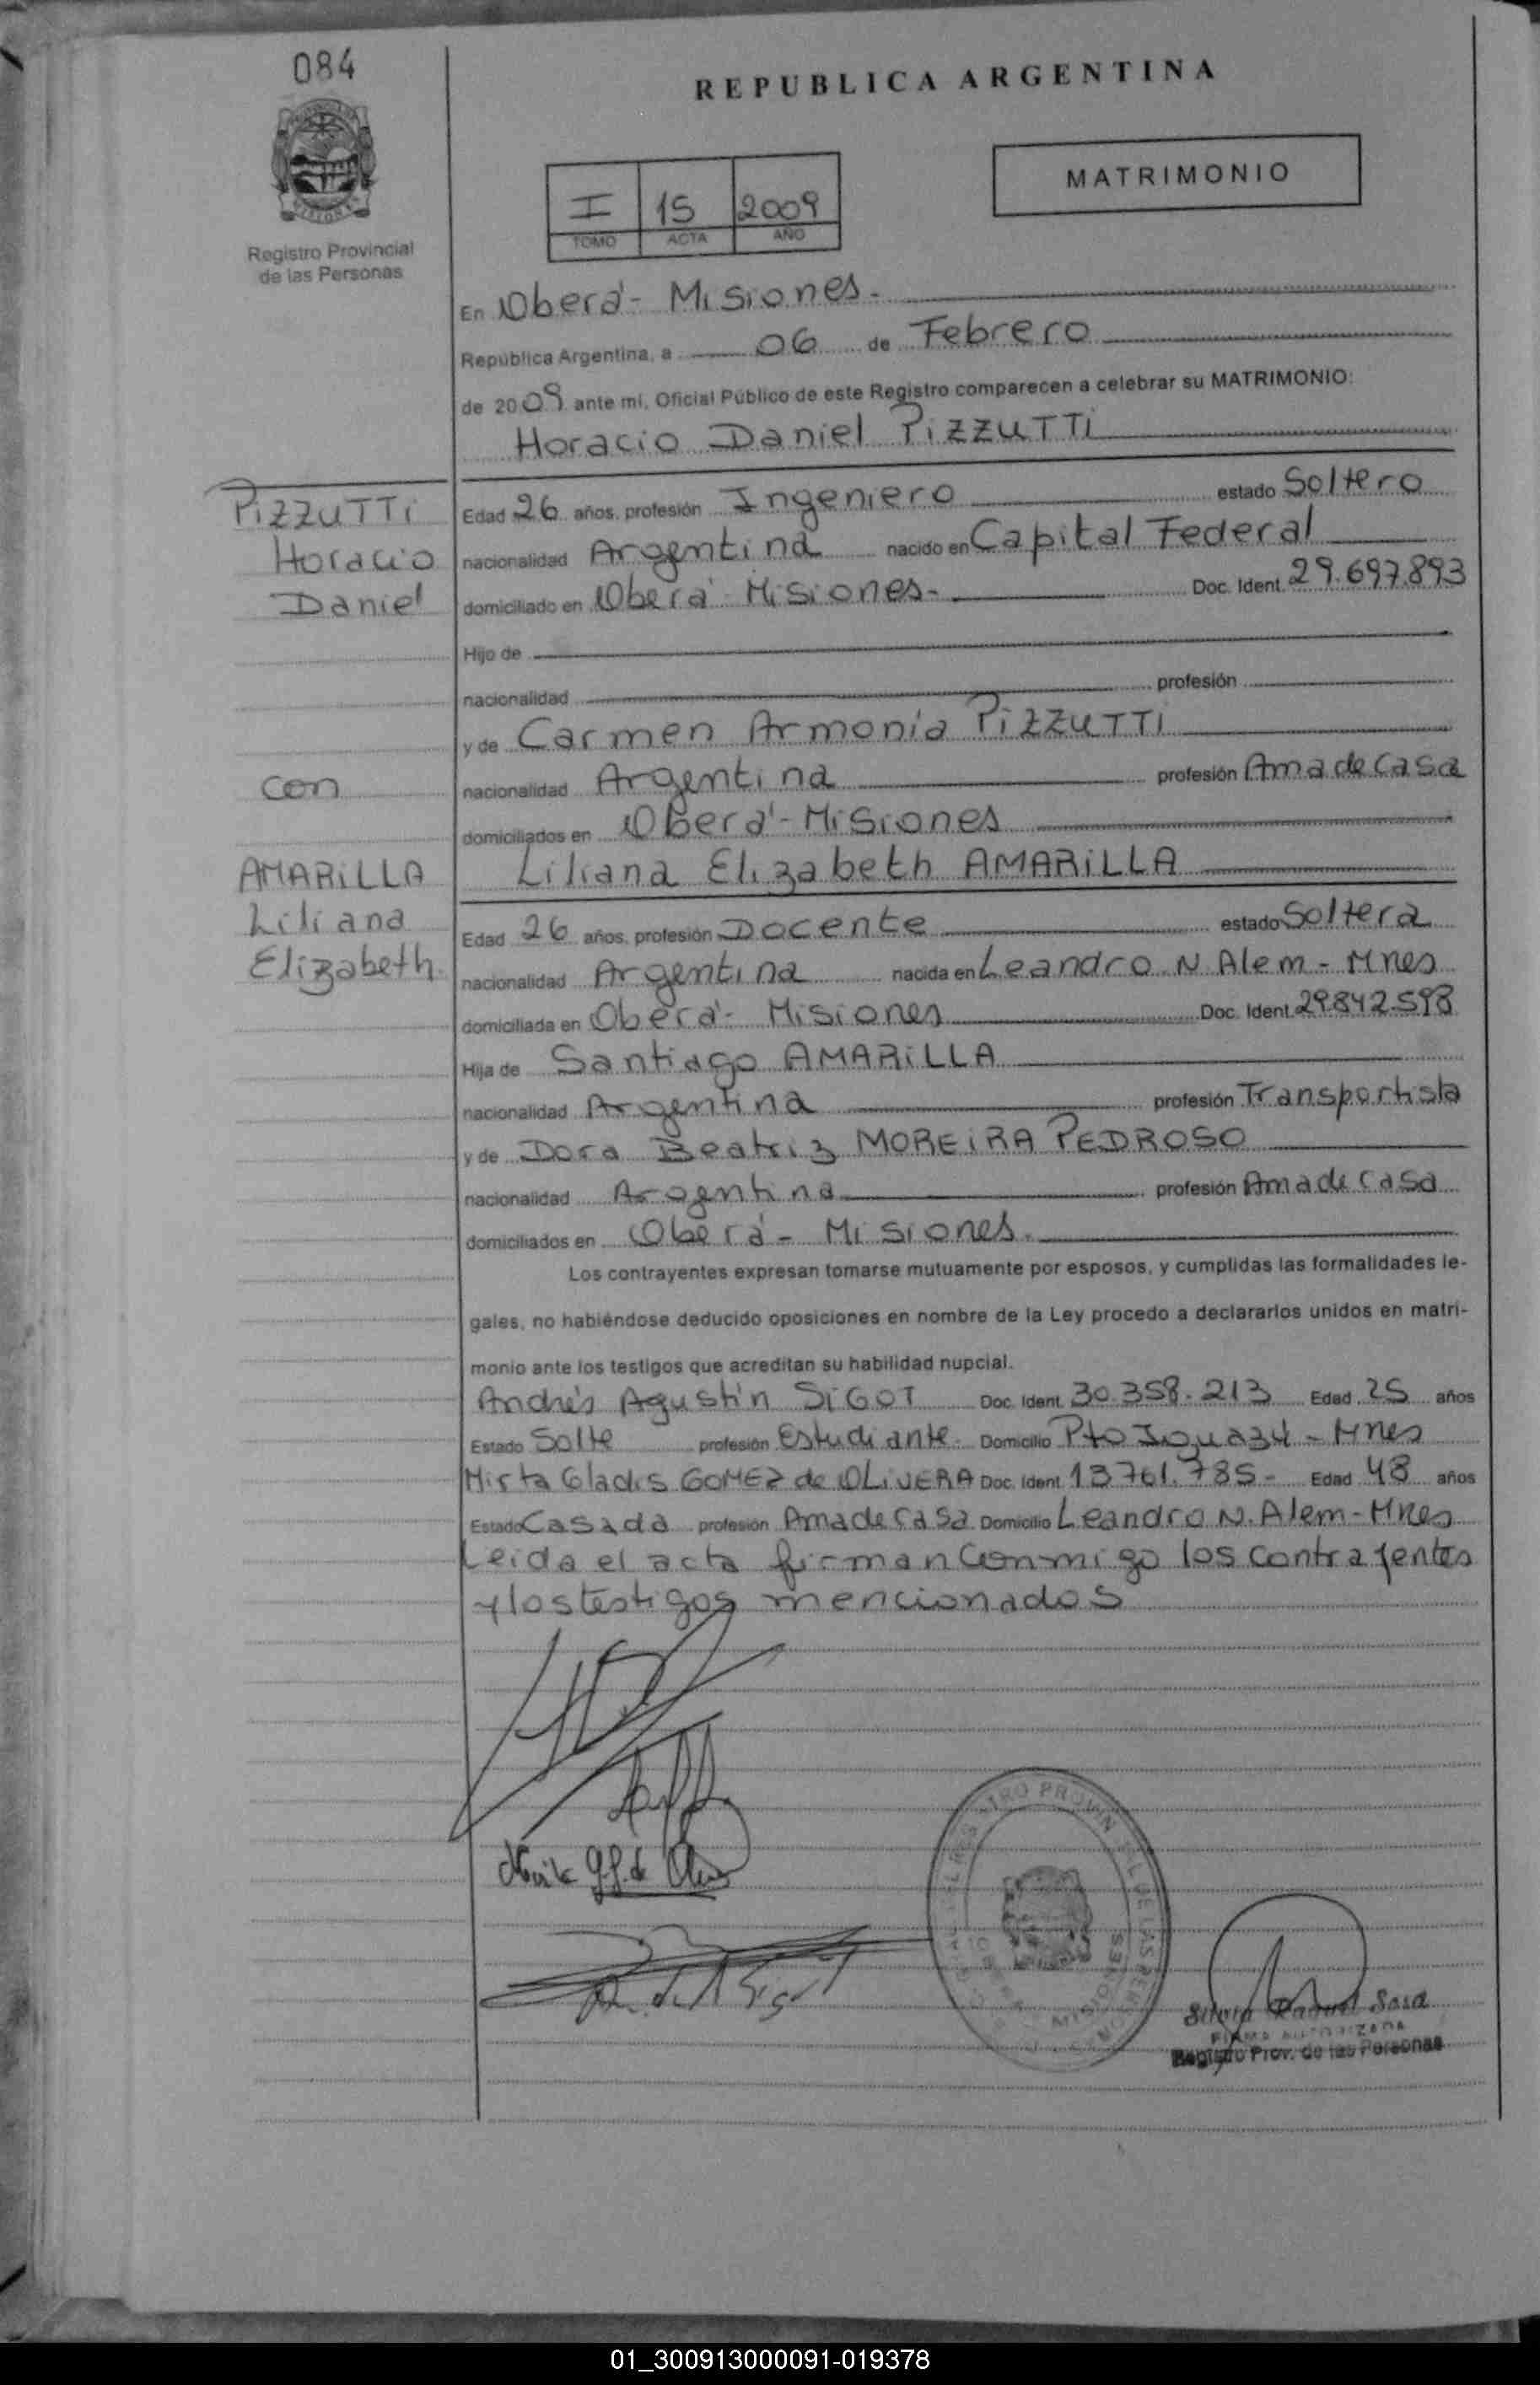 084
REPUBLICA ARGENTINA
MATRIMONIO
I 15 2009
TOMO ACTA AÑO
Registro Provincial
de las Personas
En Oberá - Misiones.-
República Argentina, a 06 de Febrero
de 2009 ante mi, Oficial Público de este Registro comparecen a celebrar su MATRIMONIO:
Horacio Daniel PIZZUTTI
PIZZUTTI
Horacio
Daniel
Edad 26 años, profesión Ingeniero estado Soltero
nacionalidad Argentina nacido en Capital Federal
domiciliado en Oberá - Misiones.- Doc. Ident. 29.697.893
Hijo de
nacionalidad profesión
y de Carmen Armonia PIZZUTTI
nacionalidad Argentina profesión Ama de casa
domiciliados en Oberá - Misiones
con
AMARILLA
Liliana
Elizabeth.
Liliana Elizabeth AMARILLA
Edad 26 años, profesión Docente estado Soltera
nacionalidad Argentina nacida en Leandro N. Alem - Mnes
domiciliada en Oberá - Misiones Doc. Ident. 29.842.598
Hija de Santiago AMARILLA
nacionalidad Argentina profesión Transportista
y de Dora Beatriz MOREIRA PEDROSO
nacionalidad Argentina profesión Ama de casa
domiciliados en Oberá - Misiones.
Los contrayentes expresan tomarse mutuamente por esposos, y cumplidas las formalidades le-
gales, no habiéndose deducido oposiciones en nombre de la Ley procedo a declararlos unidos en matri-
monio ante los testigos que acreditan su habilidad nupcial.
Andrés Agustín SIGOT Doc. Ident. 30.358.213 Edad 25 años
Estado Solte profesión Estudiante. Domicilio Pto Iguazú - Mnes
Mirta Gladis GOMEZ de OLIVERA Doc. Ident. 13.761.785.- Edad 48 años
Estado Casada profesión Ama de casa Domicilio Leandro N. Alem - Mnes
Leida el acta firman conmigo los contrayentes
y los testigos mencionados
MISIONES
FIRMA AUTORIZADA
Registro Prov. de las Personas
01_300913000091-019378